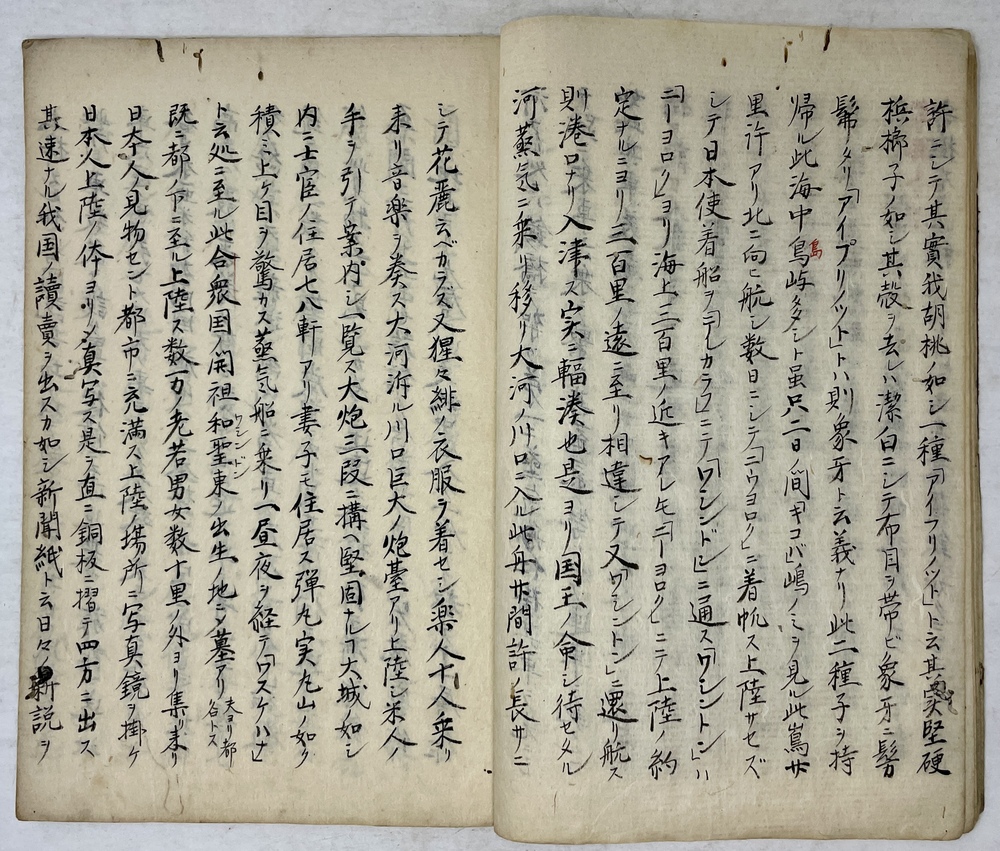 許ニシテ其實我胡桃ノ如シ一種「アイフリノット」ト云其実堅硬
梹榔子ノ如シ其殻ヲ去レハ潔白ニシテ布目ヲ帯ビ象牙ニ髣
髴タリ「アイプリノット」トハ則象牙ト云義ナリ此二種子ヲ持
帰ル此海中鳥屿多シト虽只二日ノ間「キコバ」嶋ノミヲ見ル此嶌廿
島
里許アリ北ニ向ヒ航シ数日ニシテ「ニウヨロク」ニ着帆ス上陸サセズ
シテ日本使着船ヲ「テレカラフ」ニテ「ワシンドン」ニ通ス「ワシントン」ハ
「ニーヨロク」ヨリ海上二百里ノ近キアレ𪜈「ニーヨロク」ニテ上陸ノ約
定ナルニヨリ三百里ノ遠ニ至リ相違シテ又「ワシントン」ニ還リ航ス
則港口ナリ入津ス実ニ輻湊也是ヨリ国王ノ命シ待セタル
河蒸気ニ乗リ移リ大河ノ川口ニ入ル此舟廿間許ノ長サニ
シテ花麗云ベカラズ又猩々緋ノ衣服ヲ着セシ楽人十人乗リ
来リ音楽ヲ奏ス大河泝ル川口巨大ノ炮䑓アリ上陸シ米人
手ヲ引テ案内シ一覧ス大炮三段ニ構ヘ堅固ナルヿ大城ノ如シ
内ニ士官ノ住居七八軒アリ妻子モ住居ス弾丸実丸山ノ如ク
積ミ上ケ目ヲ驚カス蒸気船ニ乗リ一昼夜ヲ経テ「ワスケハナ」
ト云処ニ至ル此合衆国ノ開祖和聖東ノ出生ノ地ニシテ墓アリ
ワシンドン
夫ヨリ都
谷トス
既ニ都ノ下ニ至ル上陸ス数万ノ老若男女数十里ノ外ヨリ集リ来リ
日本人ノ見物セント都市ニ充満ス上陸ノ場所ニ写真鏡ヲ掛ケ
日本人上陸ノ体ヨリシテ真写ス是ヲ直ニ銅板ニ摺テ四方ニ出ス
其速ナル我国ノ讀賣ヲ出スカ如シ新聞紙ト云日々ノ新説ヲ